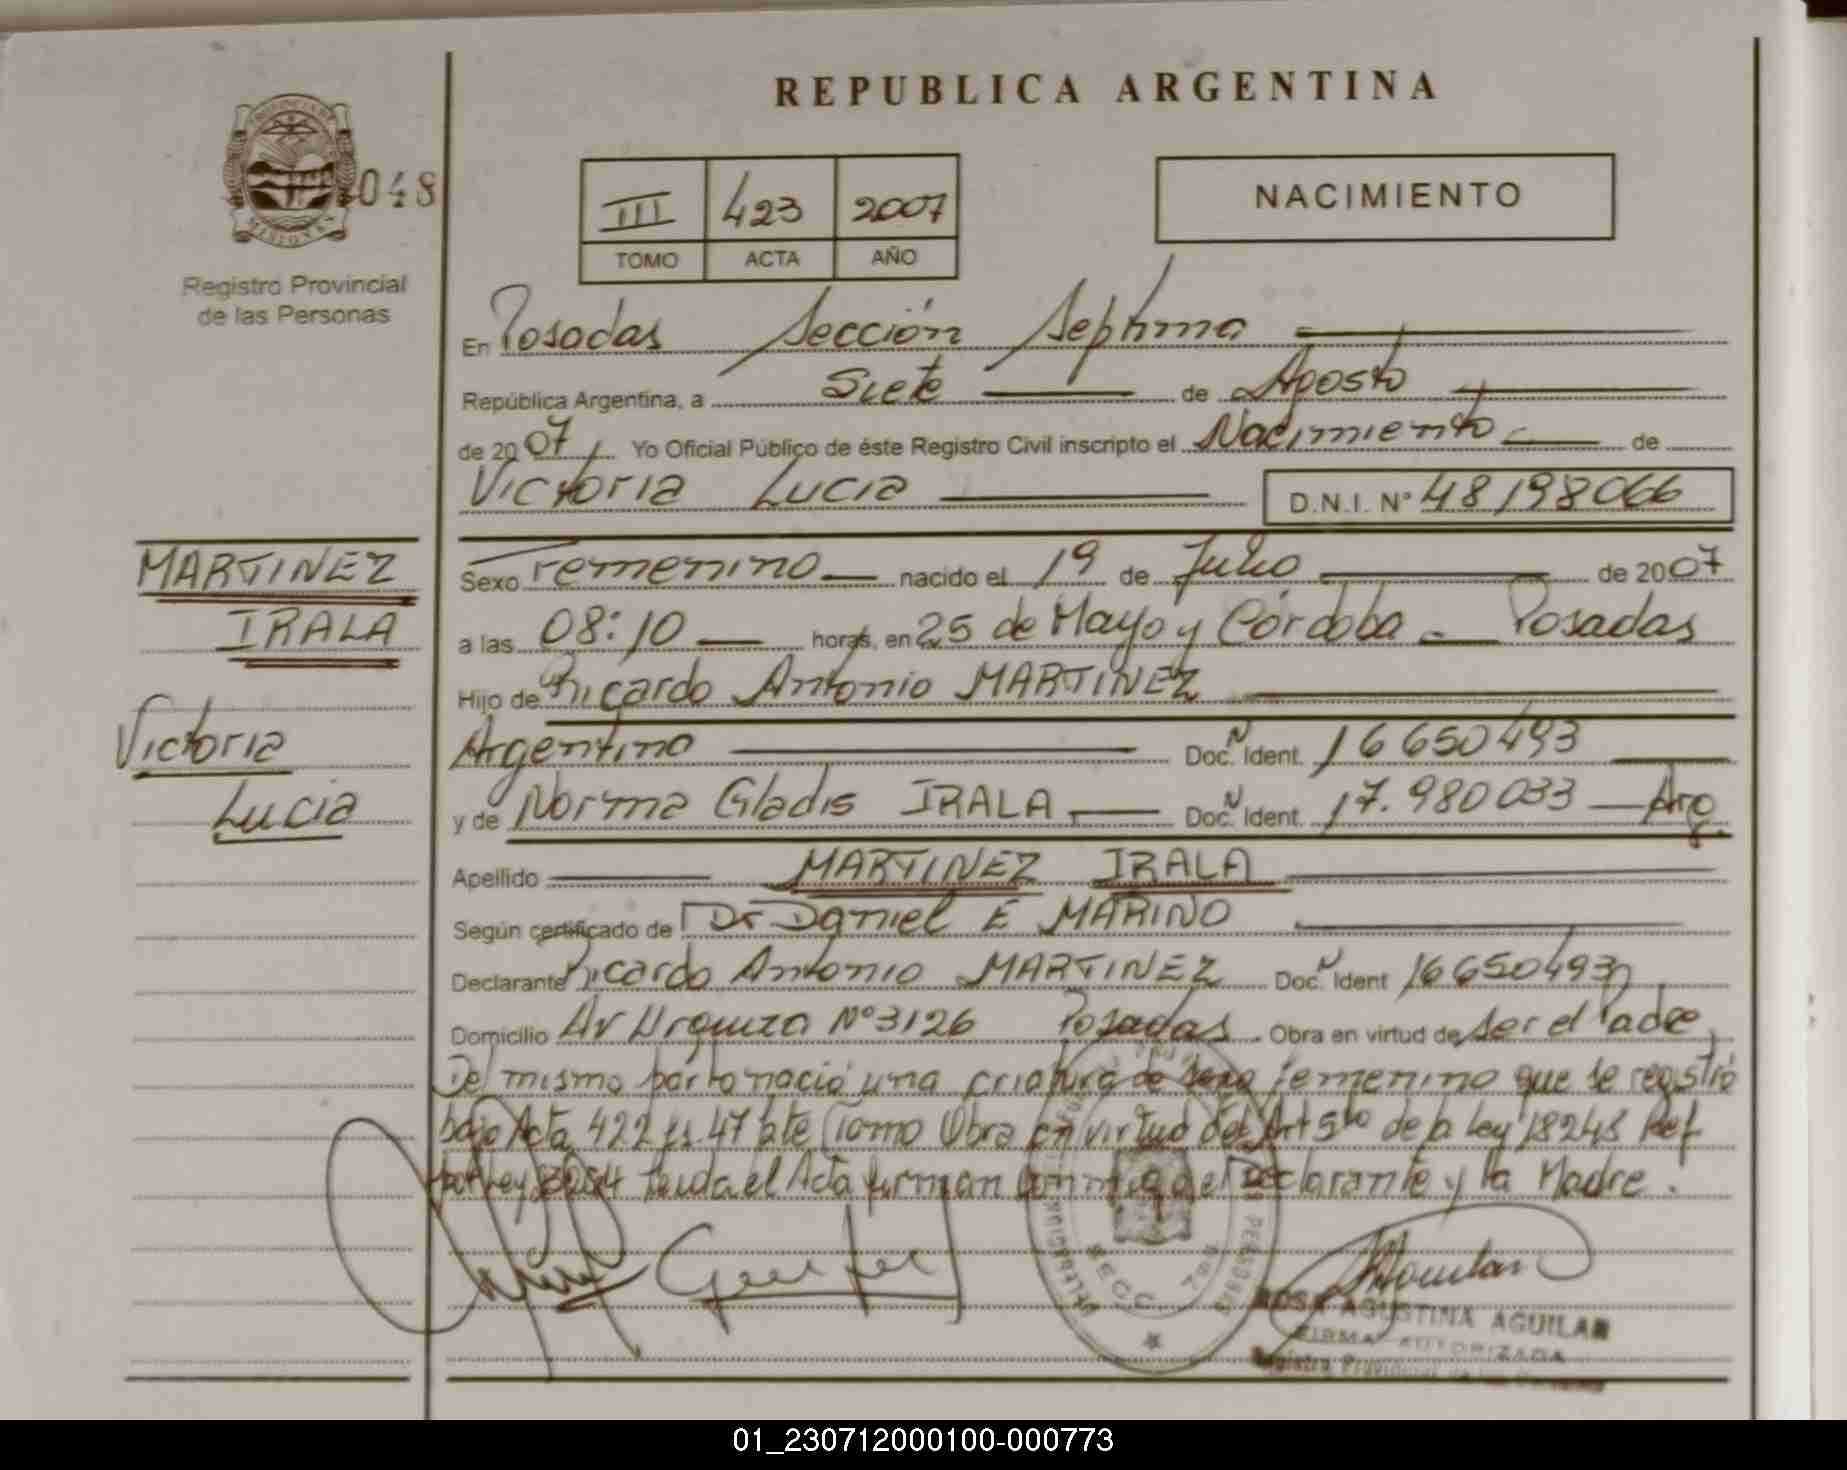 REPUBLICA ARGENTINA
PROVINCIA DE
MISIONES
048
Registro Provincial
de las Personas
III 423 2007
TOMO ACTA AÑO
NACIMIENTO
En Posadas Sección Septima
República Argentina, a Siete de Agosto
de 2007 Yo Oficial Público de éste Registro Civil inscripto el Nacimiento de
Victoria Lucia D.N.I. N° 48198066
MARTINEZ
IRALA
Victoria
Lucia
Sexo Femenino nacido el 19 de Julio de 2007
a las 08:10 horas, en 25 de Mayo y Córdoba - Posadas
Hijo de Ricardo Antonio MARTINEZ
Argentino Doc. N Ident. 16650493
y de Norma Gladis IRALA Doc. N Ident. 17.980033 Arg.
Apellido MARTINEZ IRALA
Según certificado de Dr Daniel E MARINO
Declarante Ricardo Antonio MARTINEZ Doc. N Ident 16650493
Domicilio Av Urquiza N° 3126 Posadas. Obra en virtud de ser el Padre
Del mismo parto nació una criatura de sexo femenino que se registró
bajo Acta 422 fs. 47 Tomo Obra en virtud del Art 5to de la Ley 18248 Ref
por Ley el Acta firman conmigo el Declarante y la Madre.
ROSA AGUSTINA AGUILAR
FIRMA AUTORIZADA
Registro Provincial de las Personas
01_230712000100-000773